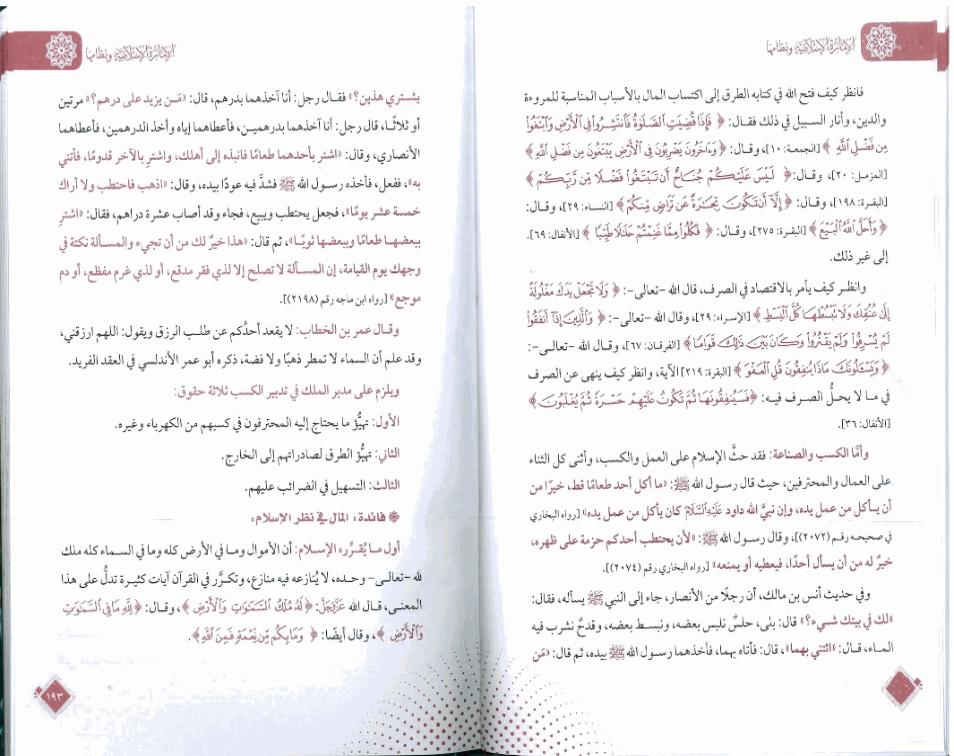 الإمارة الإسلامية ونظامها
فانظر كيف فتح الله في كتابه الطرق إلى اكتساب المال بالأسباب المناسبة للمروءة
والدين، وأنار السبيل في ذلك فقال: ﴿ فَإِذَا قُضِيَتِ الصَّلَوٰةُ فَانتَشِرُوا فِي الْأَرْضِ وَابْتَغُوا
مِن فَضْلِ اللَّهِ ﴾ [الجمعة: ١٠]، وقال: ﴿ وَءَاخَرُونَ يَضْرِبُونَ فِي الْأَرْضِ يَبْتَغُونَ مِن فَضْلِ اللَّهِ ﴾
[المزمل: ٢٠]، وقال: ﴿ لَيْسَ عَلَيْكُمْ جُنَاحٌ أَن تَبْتَغُوا فَضْلًا مِّن رَّبِّكُمْ ﴾
[البقرة: ١٩٨]، وقال: ﴿ إِلَّا أَن تَكُونَ تِجَٰرَةً عَن تَرَاضٍ مِّنكُمْ ﴾ [النساء: ٢٩]، وقال:
﴿ وَأَحَلَّ اللَّهُ الْبَيْعَ ﴾ [البقرة: ٢٧٥]، وقال: ﴿ فَكُلُوا مِمَّا غَنِمْتُمْ حَلَٰلًا طَيِّبًا ﴾ [الأنفال: ٦٩].
إلى غير ذلك.
وانظر كيف يأمر بالاقتصاد في الصرف، قال الله -تعالى-: ﴿ وَلَا تَجْعَلْ يَدَكَ مَغْلُولَةً
إِلَىٰ عُنُقِكَ وَلَا تَبْسُطْهَا كُلَّ الْبَسْطِ ﴾ [الإسراء: ٢٩]، وقال الله -تعالى-: ﴿ وَالَّذِينَ إِذَا أَنفَقُوا
لَمْ يُسْرِفُوا وَلَمْ يَقْتُرُوا وَكَانَ بَيْنَ ذَٰلِكَ قَوَامًا ﴾ [الفرقان: ٦٧]، وقال الله -تعالى-:
﴿ وَيَسْـَٔلُونَكَ مَاذَا يُنفِقُونَ قُلِ الْعَفْوَ ﴾ [البقرة: ٢١٩] الآية، وانظر كيف ينهى عن الصرف
في ما لا يحلُّ الصرف فيه: ﴿ فَسَيُنفِقُونَهَا ثُمَّ تَكُونُ عَلَيْهِمْ حَسْرَةً ثُمَّ يُغْلَبُونَ ﴾
[الأنفال: ٣٦].
وأمَّا الكسب والصناعة: فقد حثَّ الإسلام على العمل والكسب، وأثنى كل الثناء
على العمال والمحترفين، حيث قال رسول الله ﷺ: «ما أكل أحد طعامًا قط، خيرًا من
أن يأكل من عمل يده، وإن نبيَّ الله داود عَلَيْهِ السَّلَامُ كان يأكل من عمل يده» [رواه البخاري
في صحيحه رقم (٢٠٧٢)]، وقال رسول الله ﷺ: «لأن يحتطب أحدكم حزمة على ظهره،
خيرٌ له من أن يسأل أحدًا، فيعطيه أو يمنعه» [رواه البخاري رقم (٢٠٧٤)].
وفي حديث أنس بن مالك، أن رجلًا من الأنصار، جاء إلى النبي ﷺ يسأله، فقال:
«لك في بيتك شيء؟» قال: بلى، حلسٌ نلبس بعضه، ونبسط بعضه، وقدحٌ نشرب فيه
الماء، قال: «ائتني بهما»، قال: فأتاه بهما، فأخذهما رسول الله ﷺ بيده، ثم قال: «مَن
الإمارة الإسلامية ونظامها
يشتري هذين؟» فقال رجل: أنا آخذهما بدرهم، قال: «مَن يزيد على درهم؟» مرتين
أو ثلاثًا، قال رجل: أنا آخذهما بدرهمين، فأعطاهما إياه وأخذ الدرهمين، فأعطاهما
الأنصاري، وقال: «اشترِ بأحدهما طعامًا فانبذه إلى أهلك، واشترِ بالآخر قدومًا، فأتني
به»، ففعل، فأخذه رسول الله ﷺ فشدَّ فيه عودًا بيده، وقال: «اذهب فاحتطب ولا أراك
خمسة عشر يومًا»، فجعل يحتطب ويبيع، فجاء وقد أصاب عشرة دراهم، فقال: «اشترِ
ببعضها طعامًا وببعضها ثوبًا»، ثم قال: «هذا خيرٌ لك من أن تجيء والمسألة نكتة في
وجهك يوم القيامة، إن المسألة لا تصلح إلا لذي فقر مدقع، أو لذي غرم مفظع، أو دم
موجع» [رواه ابن ماجه رقم (٢١٩٨)].
وقال عمر بن الخطاب: لا يقعد أحدُكم عن طلب الرزق ويقول: اللهم ارزقني،
وقد علم أن السماء لا تمطر ذهبًا ولا فضة، ذكره أبو عمر الأندلسي في العقد الفريد.
ويلزم على مدبر الملك في تدبير الكسب ثلاثة حقوق:
الأول: تهيُّؤ ما يحتاج إليه المحترفون في كسبهم من الكهرباء وغيره.
الثاني: تهيُّؤ الطرق لصادراتهم إلى الخارج.
الثالث: التسهيل في الضرائب عليهم.
فائدة: المال في نظر الإسلام:
أول ما يُقرِّره الإسلام: أن الأموال وما في الأرض كله وما في السماء كله ملك
لله -تعالى- وحده، لا يُنازعه فيه منازع، وتكرَّر في القرآن آيات كثيرة تدلُّ على هذا
المعنى، قال الله عَزَّوَجَلَّ: ﴿ لَهُ مُلْكُ السَّمَٰوَٰتِ وَالْأَرْضِ ﴾، وقال: ﴿ لِلَّهِ مَا فِي السَّمَٰوَٰتِ
وَالْأَرْضِ ﴾، وقال أيضًا: ﴿ وَمَا بِكُم مِّن نِّعْمَةٍ فَمِنَ اللَّهِ ﴾.
١٩٣